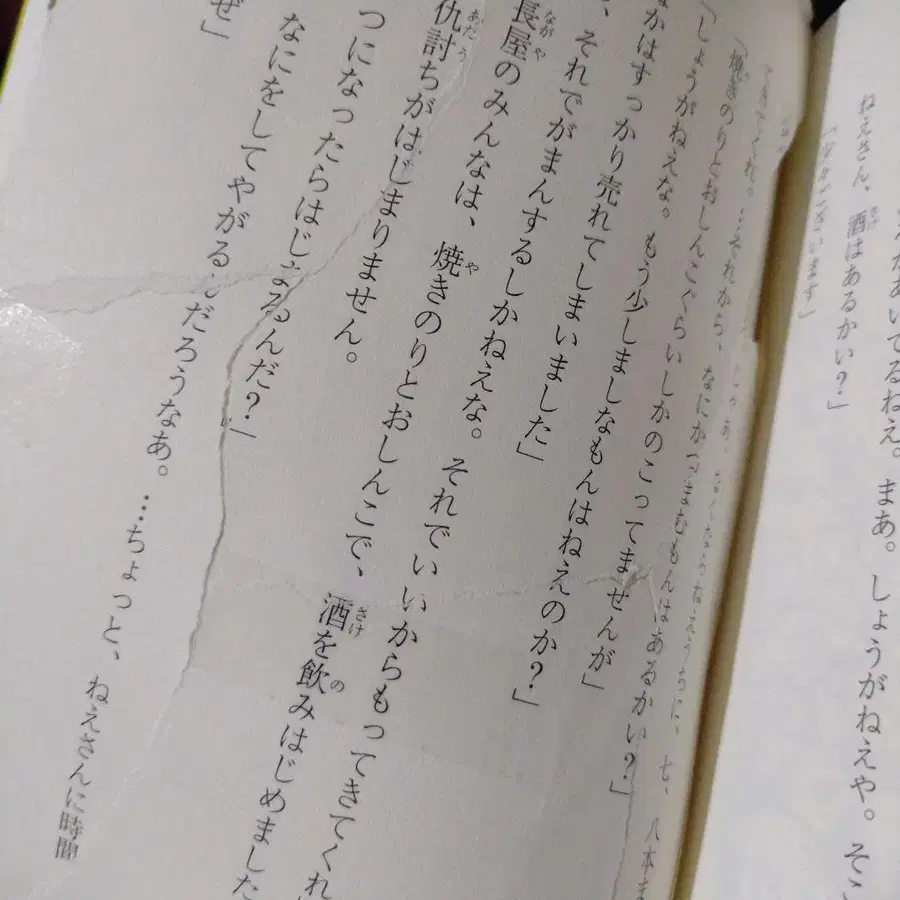 あいてるねえ。まあ。しょうがねえや。そこ
ねえさん、酒はあるかい？」
「少々ございます」
なくならねえうちに、七、八本ま
てきてくれ。…それから、なにかつまむもんはあるかい？」
「焼きのりとおしんこぐらいしかのこってませんが」
「しょうがねえな。もう少しましなもんはねえのか？」
なかはすっかり売れてしまいました」
、それでがまんするしかねえな。それでいいからもってきてくれ
長屋のみんなは、焼きのりとおしんこで、酒を飲みはじめました
仇討ちがはじまりません。
つになったらはじまるんだ？」
なにをしてやがるんだろうなあ。…ちょっと、ねえさんに時間
ぜ」